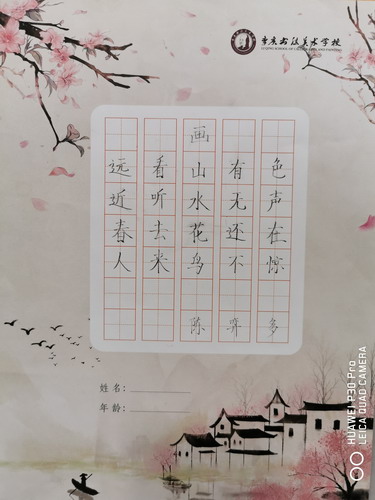 重庆书法美术学校
画
远看山有色
近听水无声
春去花还在
人来鸟不惊
陈
姓名:
年龄:
HUAWEI P30 Pro
LEICA QUAD CAMERA